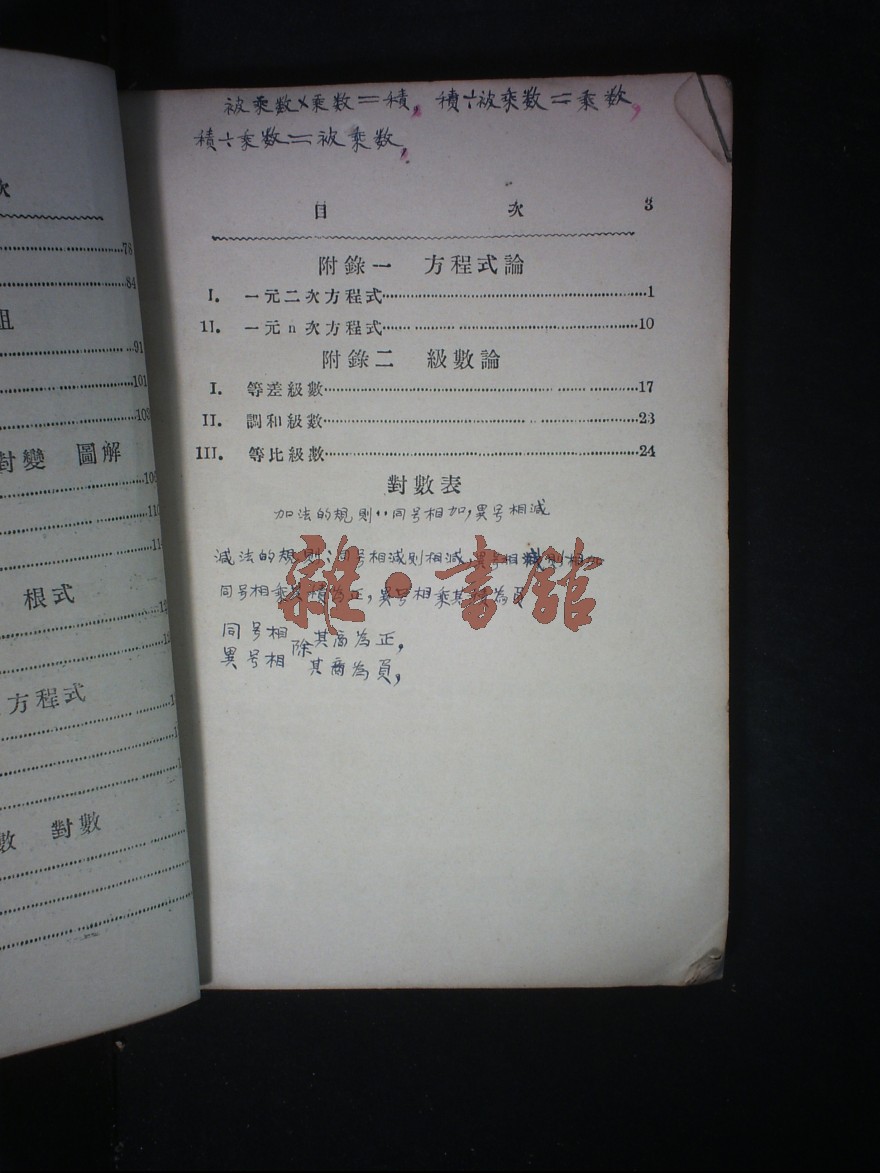 次
78
84
組
91
101
103
對變 圖解
110
根式
方程式
數 對數
被乘数×乘数=積, 積÷被乘数=乘数,
積÷乘数=被乘数,
目 次 3
附錄一 方程式論
I. 一元二次方程式 1
II. 一元n次方程式 10
附錄二 級數論
I. 等差級數 17
II. 調和級數 23
III. 等比級數 24
對數表
加法的規則:同号相加,異号相減
減法的規則;同号相減则相減,異号相減則相加
同号相乘其積为正,異号相乘其積為負
同号相 除其商為正,
異号相 其商為負,
雜·書館